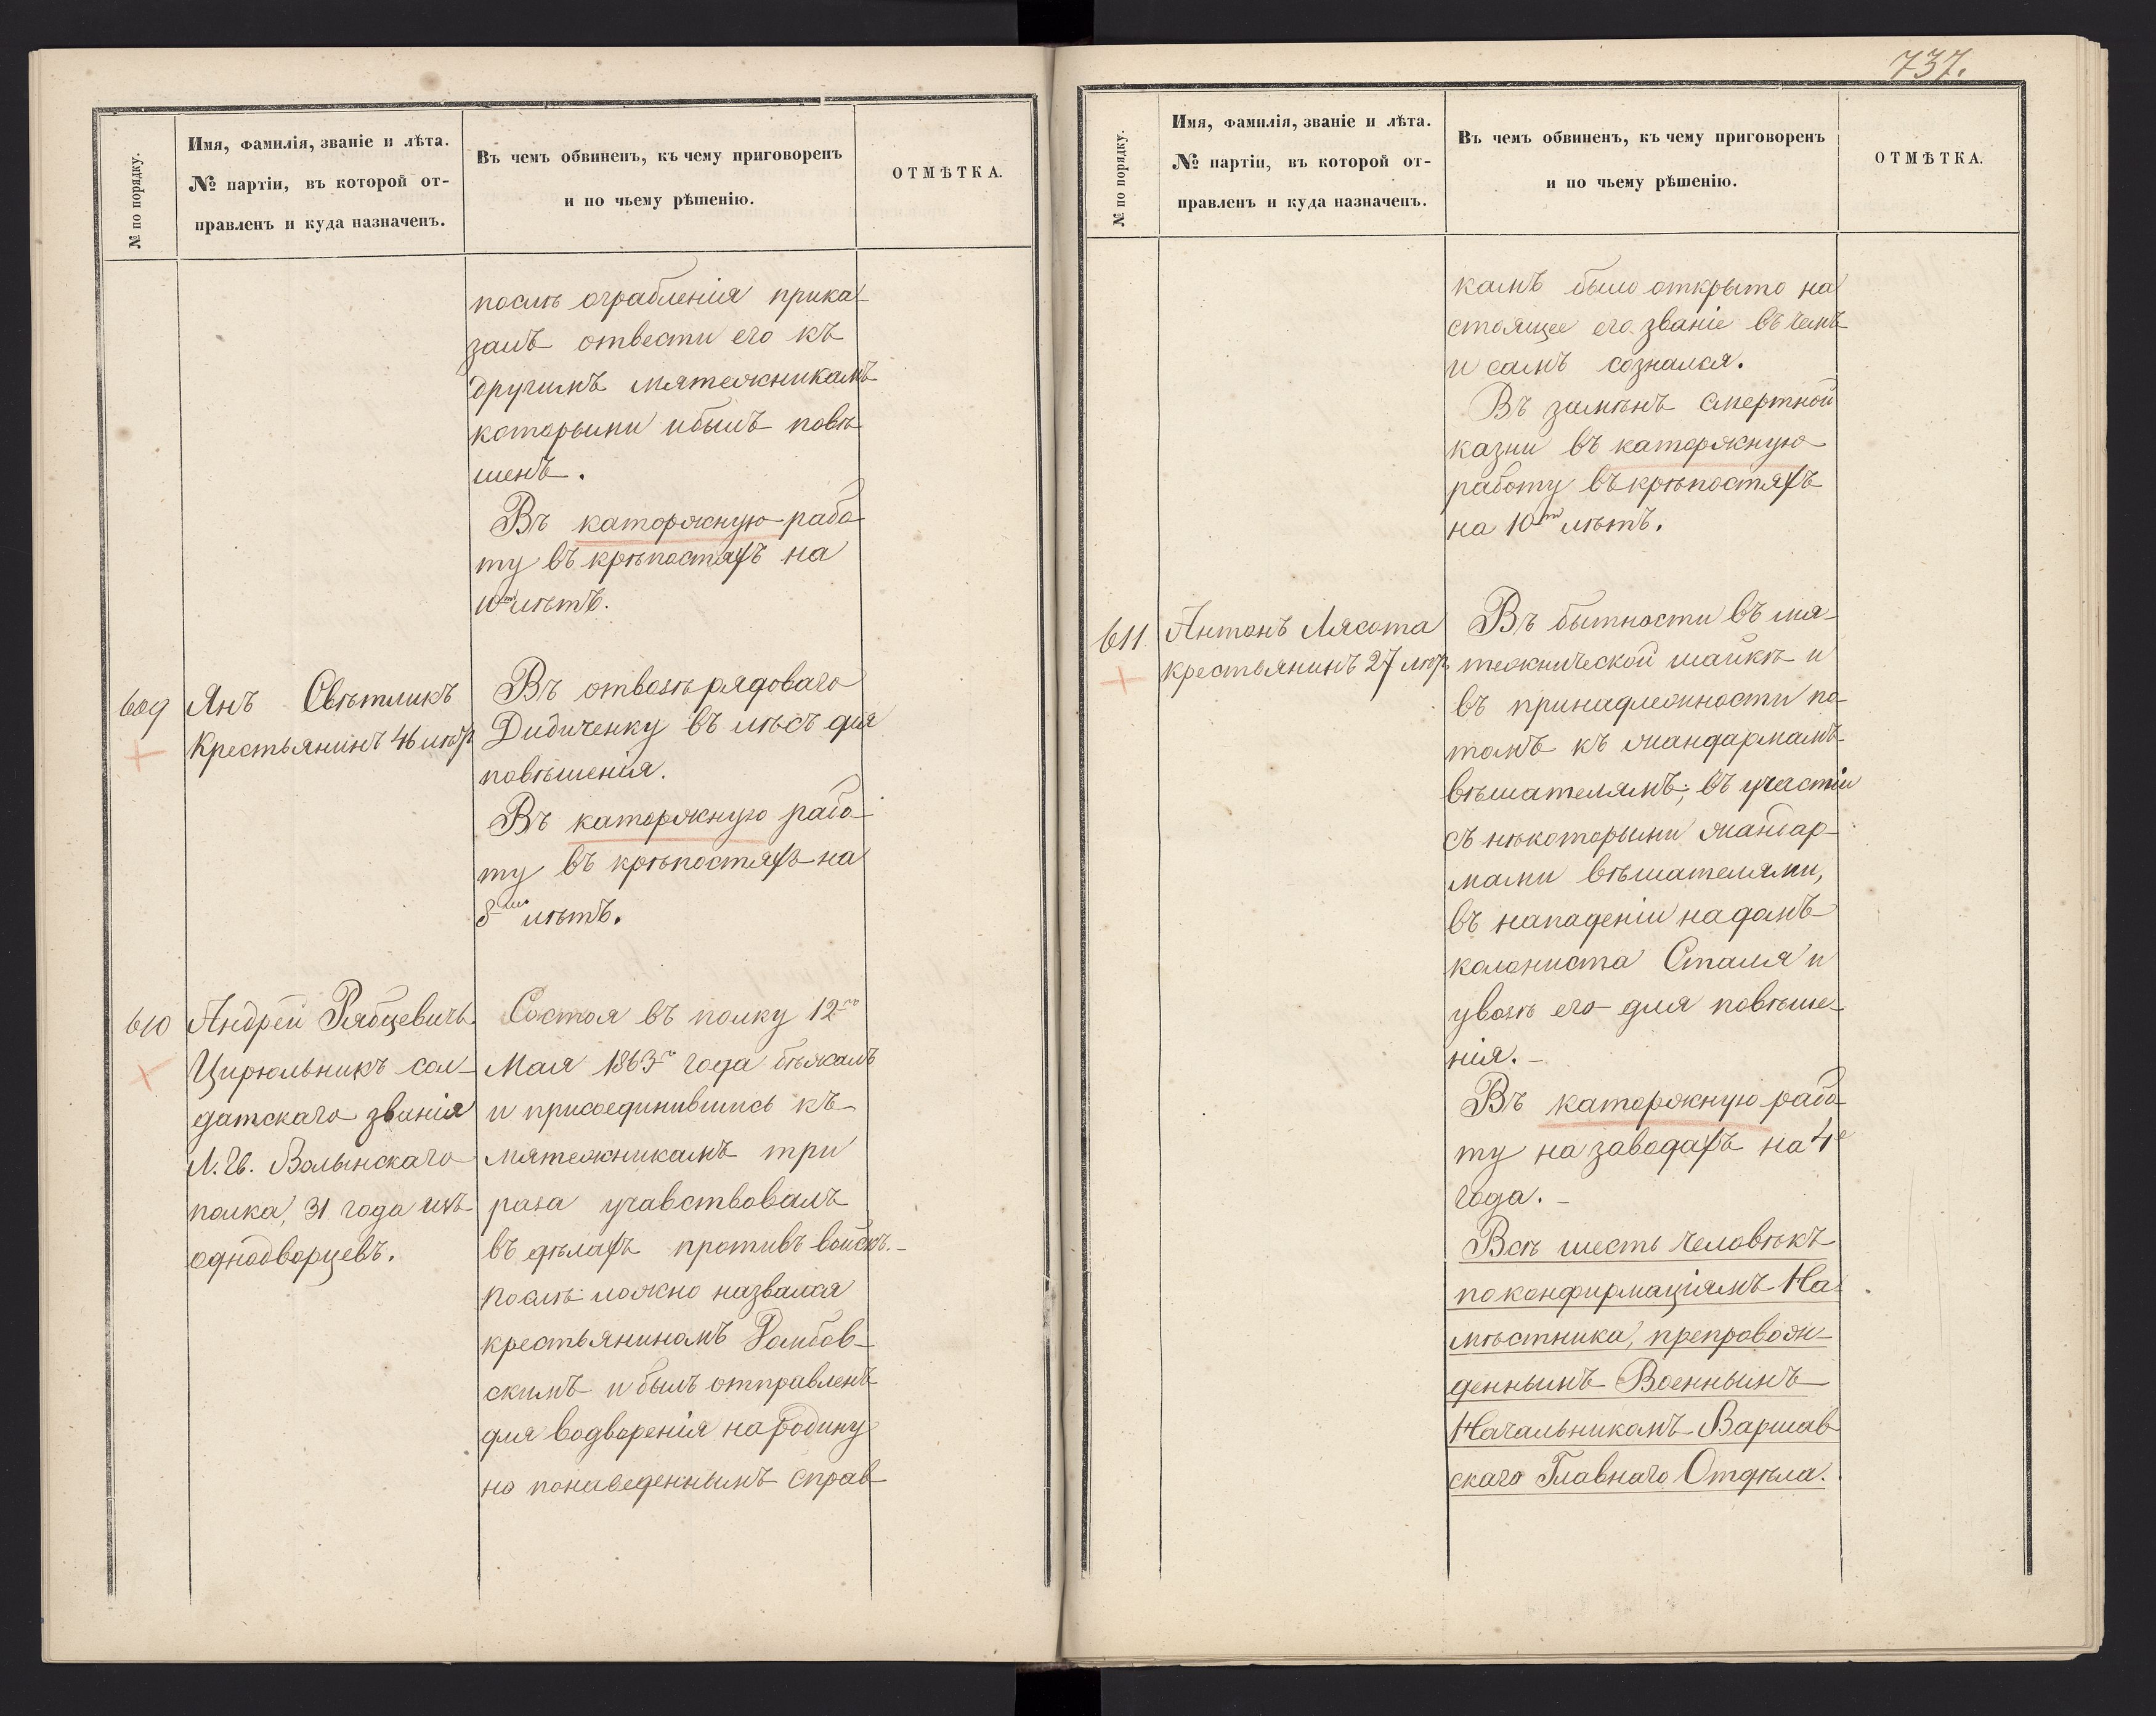 № по порядку.
Имя, фамилія, званіе и лѣта.
№ партіи, въ которой от-
правленъ и куда назначенъ.
Въ чемъ обвиненъ, къ чему приговоренъ
и по чьему рѣшенію.
ОТМѢТКА.
послѣ ограбленія прика
залъ отвести его къ
другимъ мятежникамъ
которыми и былъ повѣ
шенъ.
Въ каторжную рабо
ту въ крѣпостяхъ на
10ть лѣтъ.
609
Янъ Свѣтликъ
Крестьянинъ 46 лѣтъ
Въ отвозѣ рядоваго
Дидиченку въ лѣсъ для
повѣшенія.
Въ каторжную рабо-
ту въ крѣпостяхъ на
8мь лѣтъ.
610
Андрей Рябцевичъ
Цирюльникъ сол-
датскаго званія
Л. Гв. Волынскаго
полка, 31 года изъ
однодворцевъ.
Состоя въ полку 12го
Мая 1863го года бѣжалъ
и присоединившись къ
мятежникамъ три
раза учавствовалъ
въ дѣлахъ противъ войскъ.-
послѣ ложно назвался
крестьяниномъ Ромбов-
скимъ и былъ отправленъ
для водворенія на родину
но по наведеннымъ справ-
737.
№ по порядку.
Имя, фамилія, званіе и лѣта.
№ партіи, въ которой от-
правленъ и куда назначенъ.
Въ чемъ обвиненъ, къ чему приговоренъ
и по чьему рѣшенію.
ОТМѢТКА.
камъ было открыто на
стоящее его званіе въ чемъ
и самъ сознался.
Въ замѣнъ смертной
казни въ каторжную
работу въ крѣпостяхъ
на 10ть лѣтъ.
611
Антонъ Лясота
крестьянинъ 27 лѣтъ
Въ бытности въ мя-
тежнической шайкѣ и
въ принадлежности по-
томъ къ жандармамъ
вѣшателямъ; въ участіи
съ нѣкоторыми жандар-
мами вѣшателями,
въ нападеніи на домъ
колониста Сталя и
увозѣ его для повѣше-
нія.-
Въ каторжную рабо
ту на заводахъ на 4е
года.-
Всѣ шесть человѣкъ
по конфирмаціямъ На-
мѣстника, препровож-
деннымъ Военнымъ
Начальникомъ Варшав
скаго Главнаго Отдѣла.